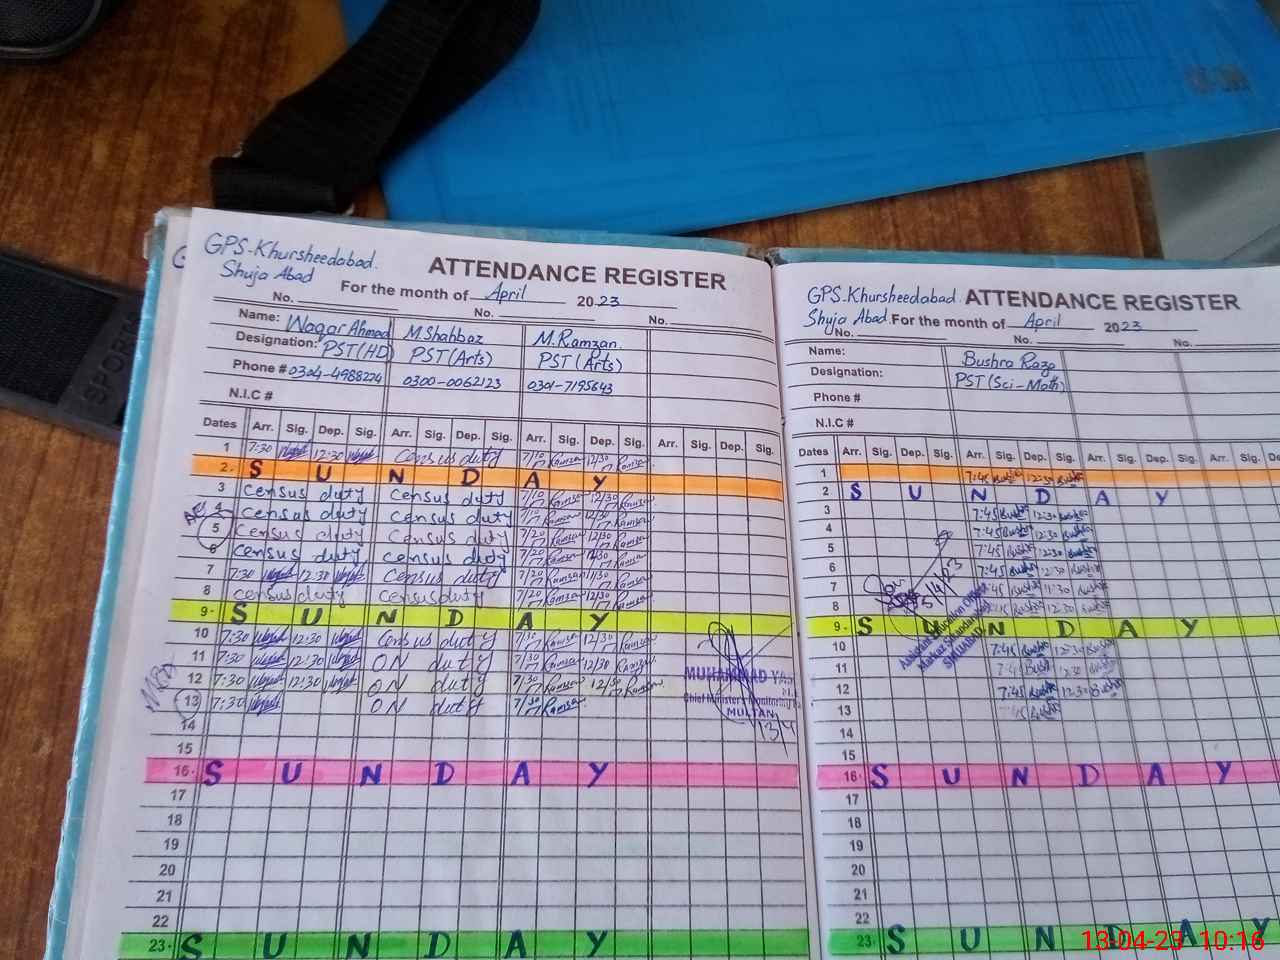 GPS-Khursheedabad.
Shuja Abad
ATTENDANCE REGISTER
For the month of April 2023
No. No. No.
Name: Waqar Ahmed M.Shahbaz M.Ramzan
Designation: PST(HD) PST(Arts) PST(Arts)
Phone # 0304-4988224 0300-0062123 0301-7195643
N.I.C #
Dates Arr. Sig. Dep. Sig. Arr. Sig. Dep. Sig. Arr. Sig. Dep. Sig. Arr. Sig. Dep. Sig.
1 7:30 12:30 Census duty 7/10 Ramzan 12/30 Ramzan
2. S U N D A Y
3 Census duty Census duty 7/10 Ramzan 12/30 Ramzan
4 Census duty Census duty 7/10 Ramzan 12/30 Ramzan
5 Census duty Census duty 7/20 Ramzan 12/30 Ramzan
6 Census duty Census duty 7/20 Ramzan 12/30 Ramzan
7 7:30 12:30 Census duty 7/20 Ramzan 11/30 Ramzan
8 Census duty Census duty 7/20 Ramzan 12/30 Ramzan
9- S U N D A Y
10 7:30 12:30 Census duty 7/30 Ramzan 12/30 Ramzan
11 7:30 12:30 ON duty 7/30 Ramzan 12/30 Ramzan
12 7:30 12:30 ON duty 7/30 Ramzan 12/30 Ramzan
13 7:30 ON duty 7/30 Ramzan
14
15
16- S U N D A Y
17
18
19
20
21
22
23- S U N D A Y
MUHAMMAD
Chief Minister's Monitoring
MULTAN
GPS.Khursheedabad
Shuja Abad.
ATTENDANCE REGISTER
For the month of April 2023
No. No. No.
Name: Bushra Raza
Designation: PST(Sci-Math)
Phone #
N.I.C #
Dates Arr. Sig. Dep. Sig. Arr. Sig. Dep. Sig. Arr. Sig. Dep. Sig. Arr. Sig.
1 7:45 Bushra 12:30 Bushra
2 S U N D A Y
3 7:45 Bushra 12:30 Bushra
4 7:45 Bushra 12:30 Bushra
5 7:45 Bushra 12:30 Bushra
6 7:45 Bushra 12:30 Bushra
7 Bushra 11:30 Bushra
8 Bushra 12:30 Bushra
9- S U N D A Y
10 7:45 Bushra 12:30 Bushra
11 7:45 Bushra 12:30 Bushra
12 7:45 Bushra 12:30 Bushra
13 Bushra
14
15
16- S U N D A Y
17
18
19
20
21
22
23- S U N D A Y
Assistant Education Officer
13-04-23 10:16